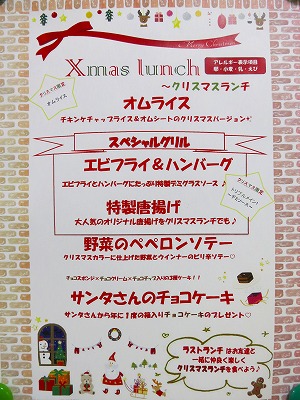 Merry Christmas
Xmas lunch
アレルギー表示項目
卵・小麦・乳・えび
～クリスマスランチ
クリスマス限定
オムライス
オムライス
チキンケチャップライス＆オムシートのクリスマスバージョン
スペシャルグリル
エビフライ＆ハンバーグ
エビフライとハンバーグにたっぷり特製デミグラスソース♪
クリスマス限定
トリプルメイン！
特製唐揚げ
大人気のオリジナル唐揚げをクリスマスランチでも♪
野菜のペペロンソテー
クリスマスカラーに仕上げた野菜とウインナーのピリ辛ソテー♡
チョコスポンジ×チョコクリーム×チョコチップ入りの3層ケーキ！！
サンタさんのチョコケーキ
サンタさんから年に1度の箱入りチョコケーキのプレゼント♡
ラストランチ はお友達と
一緒に仲良く楽しく
クリスマスランチを食べよう♪